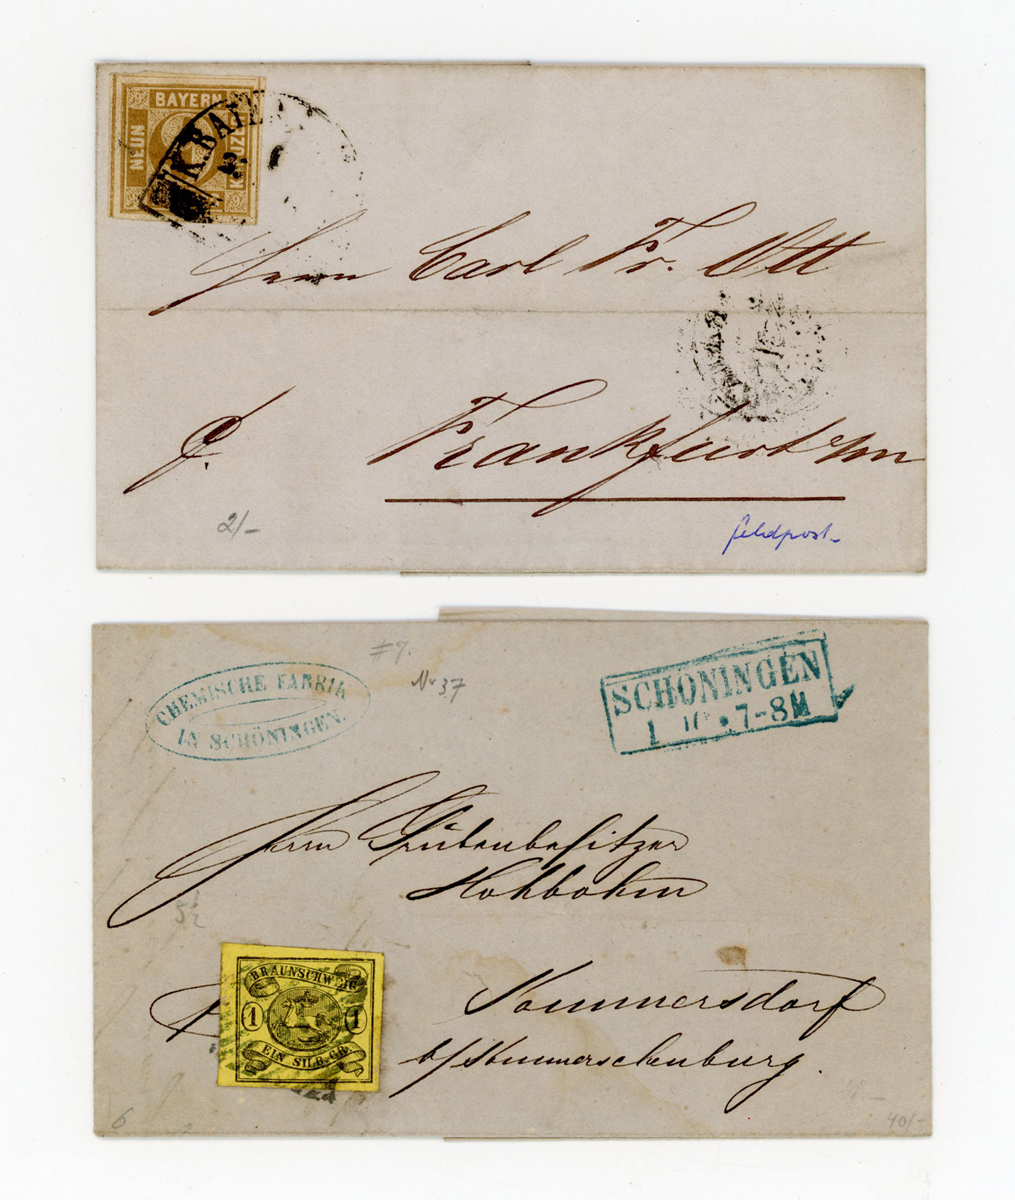 BAYERN
NEUN
KREUZER
9
9
K.BAYER
Herrn Carl Fr. Ott
Frankfurt a/m
2/-
feldpost-
#7.
Nr 37
CHEMISCHE FABRIK
IN SCHÖNINGEN.
SCHÖNINGEN
1 10 7-8M
Herrn Grubenbesitzer
Hohbohm
5½
BRAUNSCHWEIG
1
1
EIN SILB.GR.
Sommersdorf
b/Sommerschenburg.
6
40/-